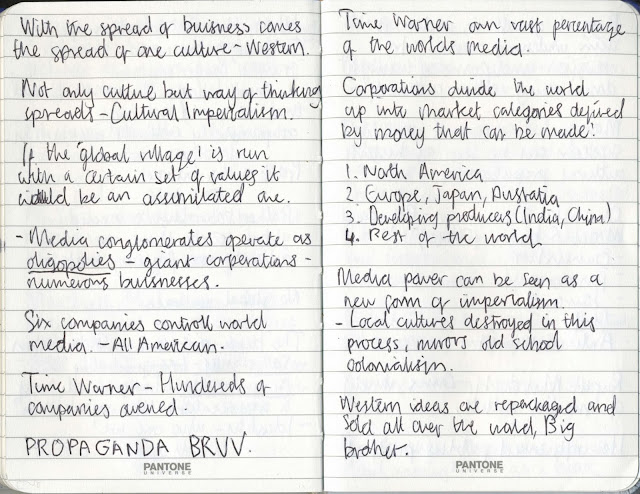 With the spread of buisness comes
the spread of one culture - Western.
Not only culture but way of thinking
spreads - Cultural Imperialism.
If the 'global village' is run
with a certain set of values it
would be an assimilated one.
- Media conglomerates operate as
oligopolies - giant corporations -
numerous buisnesses.
Six companies controll world
media. - All American.
Time Warner - Hundereds of
companies owned.
PROPAGANDA BRUV.
PANTONE
UNIVERSE
Time Warner own vast percentage
of the worlds media.
Corporations divide the world
up into market categories defined
by money that can be made:
1. North America
2. Europe, Japan, Australia
3. Developing producers (India, China)
4. Rest of the world
Media power can be seen as a
new form of imperialism.
- Local cultures destroyed in this
process, mirrors old school
colonialism.
Western ideas are repackaged and
sold all over the world, Big
brother.
PANTONE
UNIVERSE